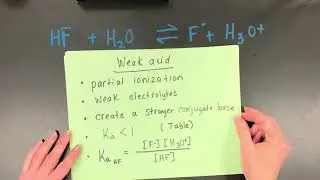 HF + H₂O ⇌ F⁻ + H₃O⁺
Weak acid
• partial ionization
• weak electrolytes
• create a stronger conjugate base
• Ka < 1 (Table)
• Ka HF = [F⁻][H₃O⁺]
[HF]